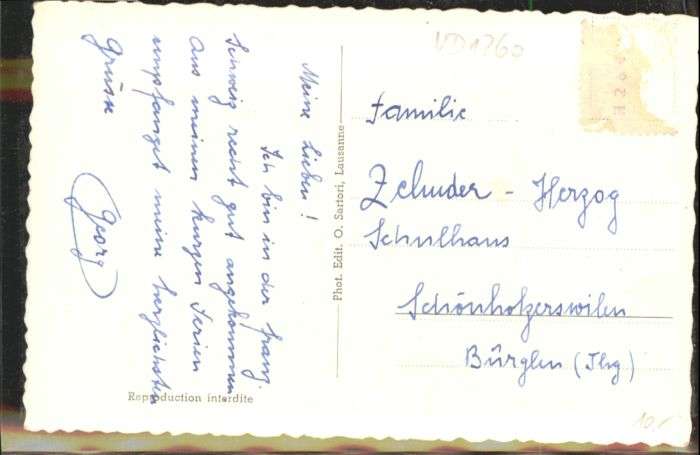 Meine Lieben!
Ich bin in der franz.
Schweiz recht gut angekommen
Aus meinen kurzen Ferien
empfanget meine herzlichsten
Grüsse
Georg
Reproduction interdite
Phot. Edit. O. Sartori, Lausanne
VD1260
Familie
Zehnder - Herzog
Schulhaus
Schönholzerswilen
Bürglen (Thg)
10.-